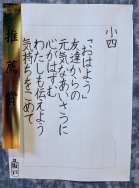 小四
「おはよう」
友達からの
元気なあいさつに
心がはずむ
わたしも伝えよう
気持ちをこめて
推薦賞